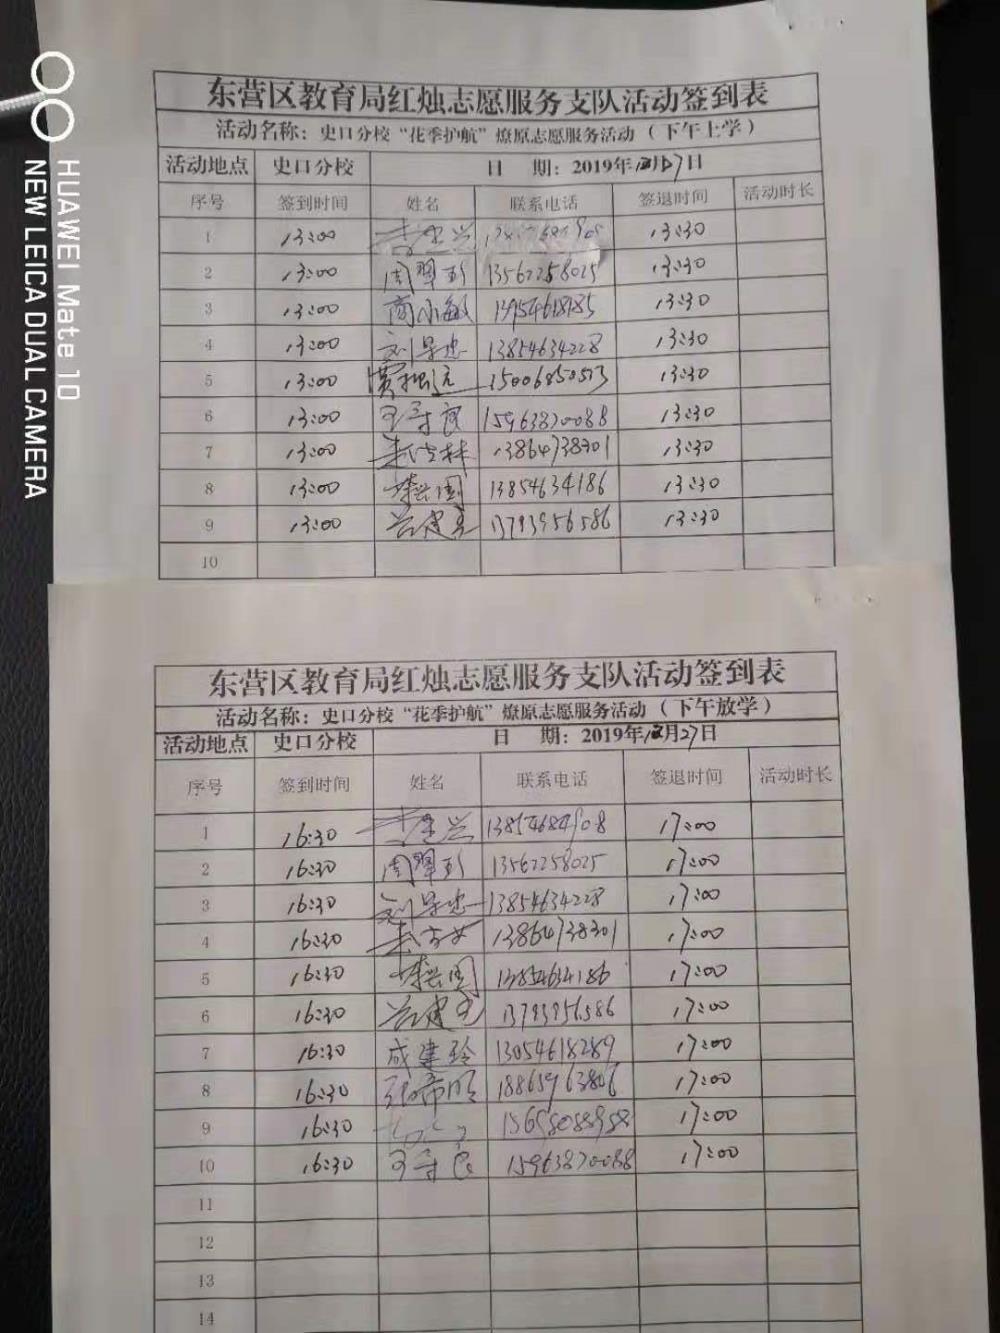 东营区教育局红烛志愿服务支队活动签到表
活动名称：史口分校“花季护航”燎原志愿服务活动（下午上学）
活动地点 史口分校 日 期：2019年 月 7日
序号 签到时间 姓名 联系电话 签退时间 活动时长
1 13:00 13:30
2 13:00 13562258025 13:30
3 13:00 商小敏 13954618185 13:30
4 13:00 13854634228 13:30
5 13:00 15006850513 13:30
6 13:00 王守良 15963870088 13:30
7 13:00 13864738301 13:30
8 13:00 13854634186 13:30
9 13:00 13793956586 13:30
10
东营区教育局红烛志愿服务支队活动签到表
活动名称：史口分校“花季护航”燎原志愿服务活动（下午放学）
活动地点 史口分校 日 期：2019年 月27日
序号 签到时间 姓名 联系电话 签退时间 活动时长
1 16:30 13854684908 17:00
2 16:30 13562258025 17:00
3 16:30 13854634228 17:00
4 16:30 13864738301 17:00
5 16:30 13854634186 17:00
6 16:30 13793956586 17:00
7 16:30 成建玲 13054618289 17:00
8 16:30 18865963806 17:00
9 16:30 17:00
10 16:30 王守良 15963870088 17:00
11
12
13
14
HUAWEI Mate 10
NEW LEICA DUAL CAMERA